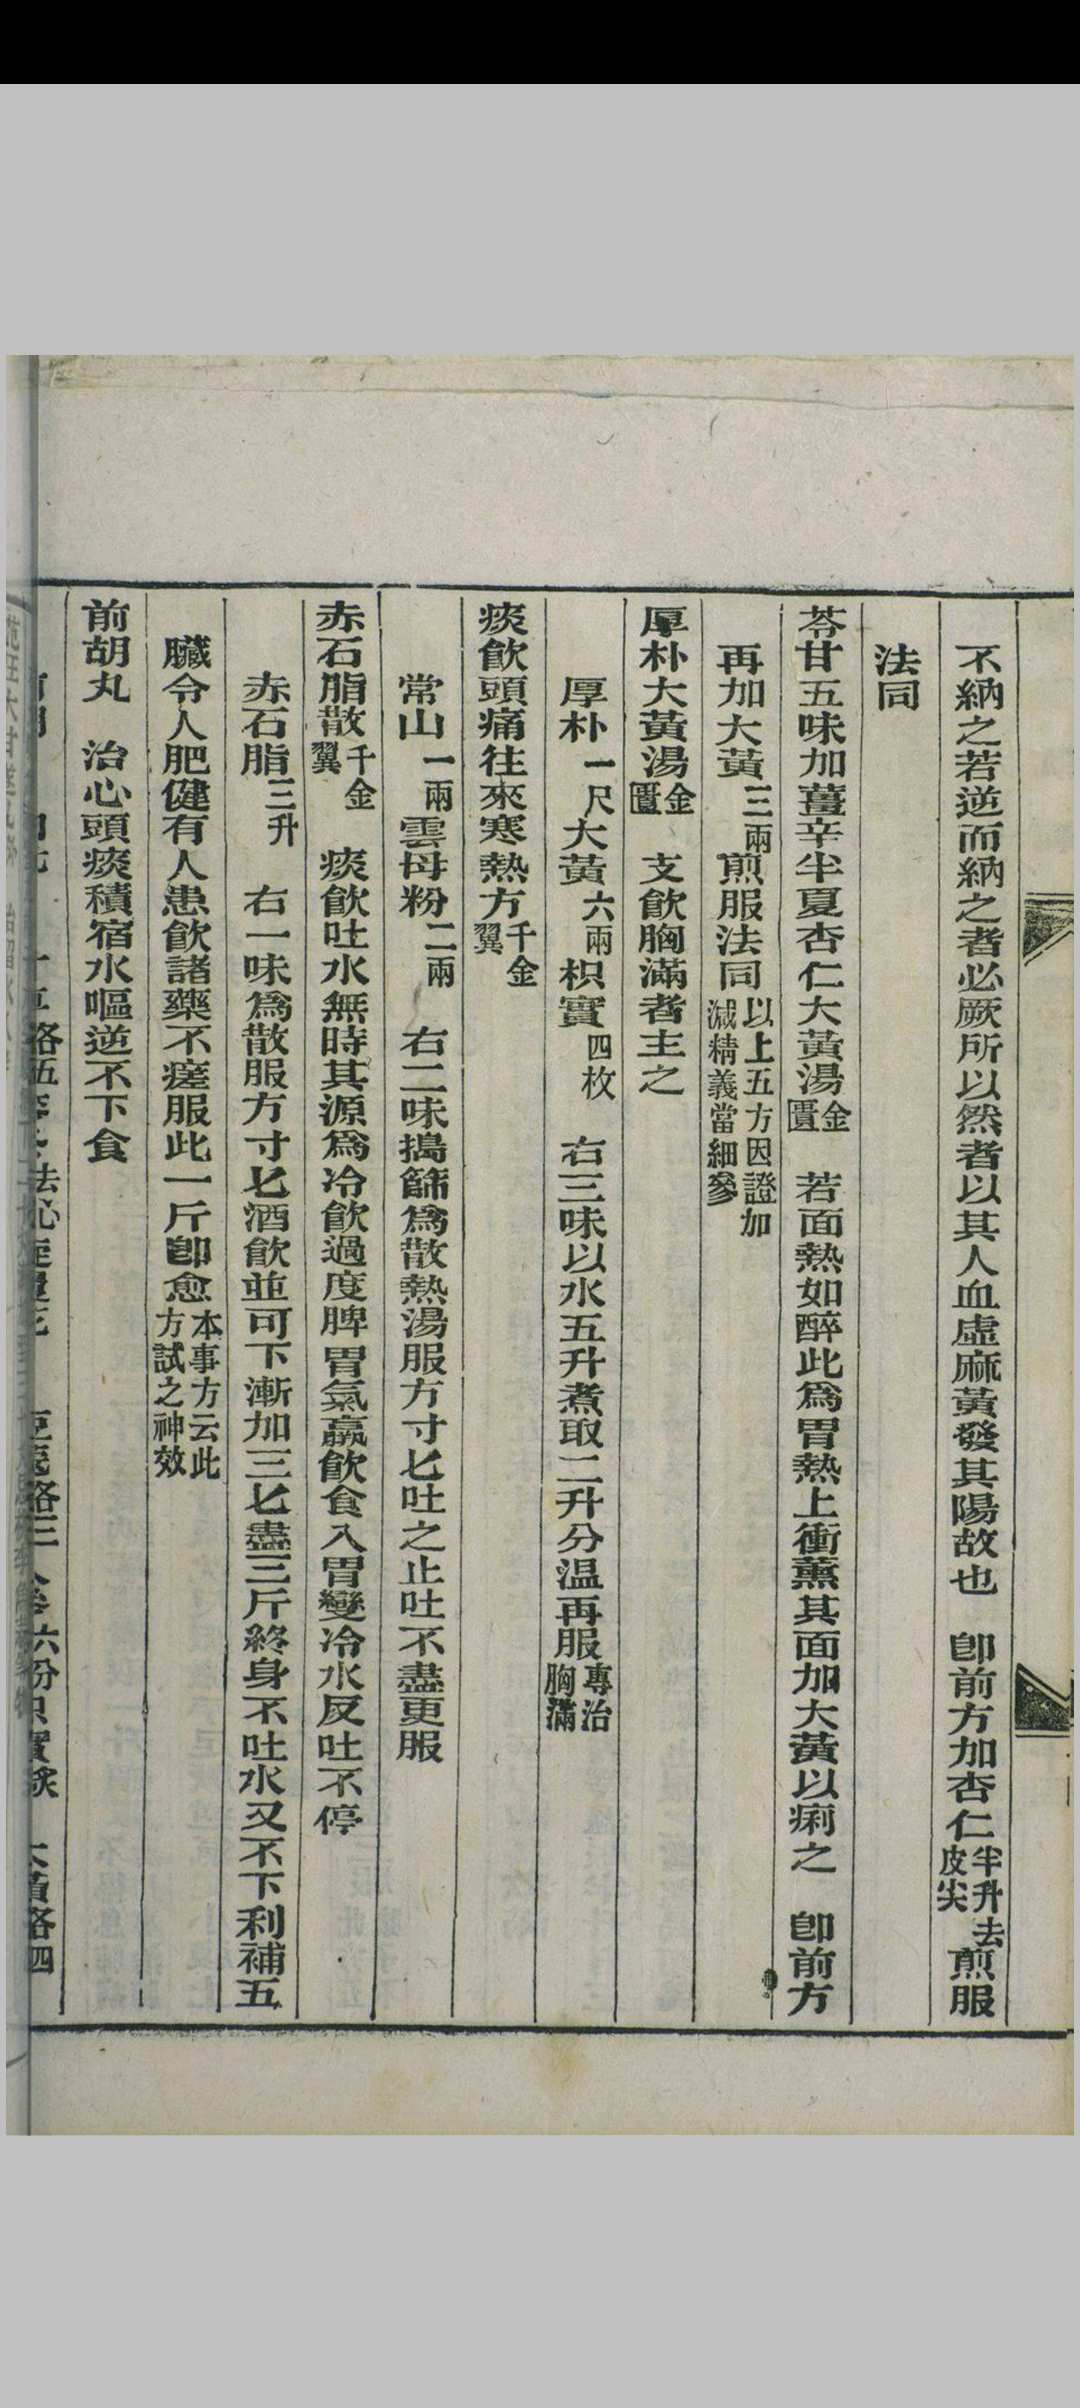 不納之若逆而納之者必厥所以然者以其人血虛麻黃發其陽故也　卽前方加杏仁半升去皮尖煎服
法同
苓甘五味加薑辛半夏杏仁大黃湯金匱　若面熱如醉此爲胃熱上衝薰其面加大黃以痢之　卽前方
再加大黃三兩煎服法同以上五方因證加減精義當細參
厚朴大黃湯金匱　支飲胸滿者主之
厚朴一尺大黃六兩枳實四枚　右三味以水五升煮取二升分温再服專治胸滿
痰飲頭痛往來寒熱方千金翼
常山一兩雲母粉二兩　右二味搗篩爲散熱湯服方寸匕吐之止吐不盡更服
赤石脂散千金翼　痰飲吐水無時其源爲冷飲過度脾胃氣羸飲食入胃變冷水反吐不停
赤石脂三升　右一味爲散服方寸匕酒飲並可下漸加三匕盡三斤終身不吐水又不下利補五
臟令人肥健有人患飲諸藥不瘥服此一斤卽愈本事方云此方試之神效
前胡丸　治心頭痰積宿水嘔逆不下食